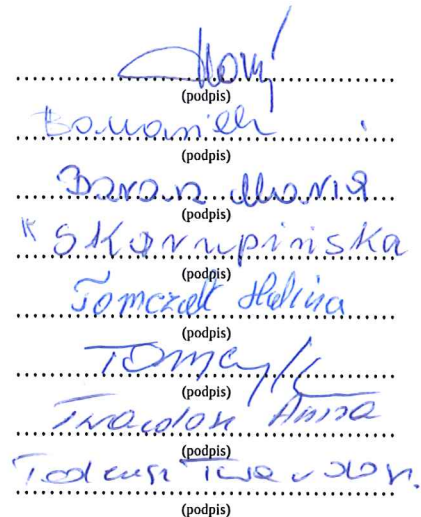 (podpis)
(podpis)
Baran Maria
(podpis)
Skorupińska
(podpis)
Tomczak Halina
(podpis)
(podpis)
Twardosz Anna
(podpis)
Tadeusz Twardosz.
(podpis)